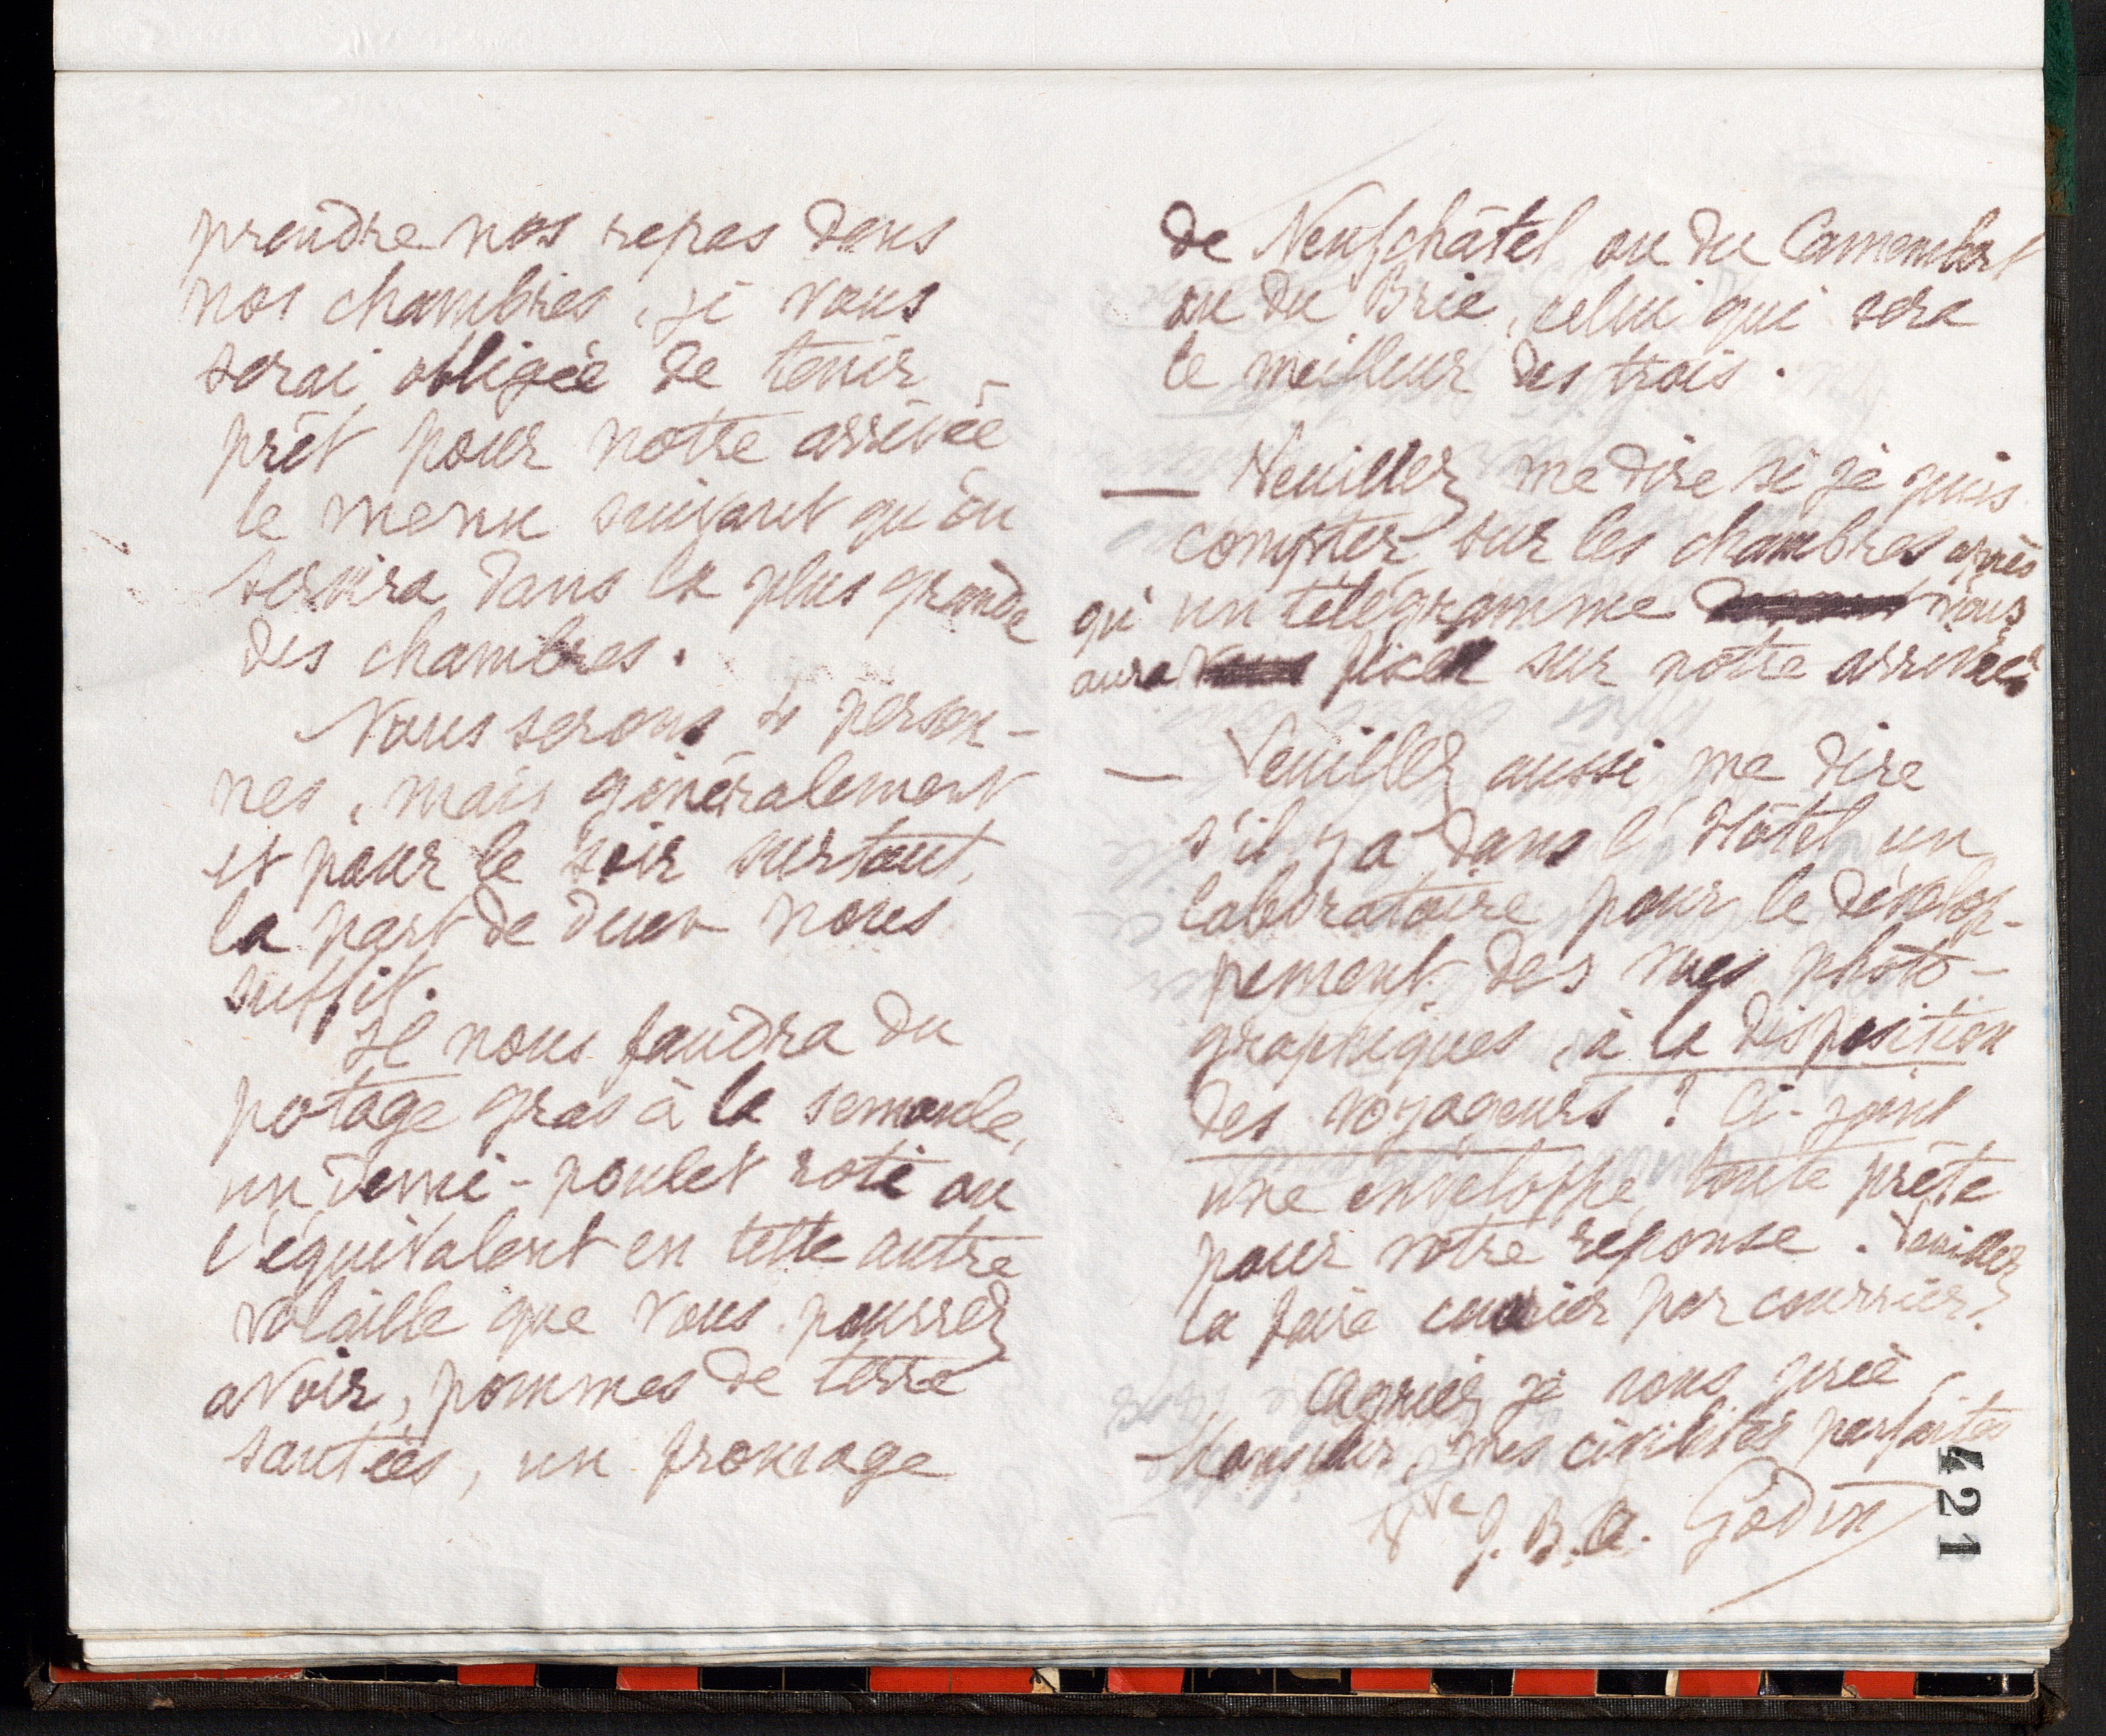 prendre nos repas dans
nos chambres, je vous
serai obligée de tenir
prêt pour notre arrivée
le menu suivant qu'on
servira dans la plus grande
des chambres.
Nous serons 4 person-
nes, mais généralement
et pour le soir surtout,
la part de deux nous
suffit.
Il nous faudra du
potage gras à la semoule,
un demi-poulet roti ou
l'équivalent en telle autre
volaille que vous pourrez
avoir, pommes de terre
sautées, un fromage
de Neufchâtel ou du Camembert
ou du Brie, celui qui sera
le meilleur des trois.
— Veuillez me dire si je puis
compter sur les chambres après
qu'un télégramme nous
aura fixer sur notre arrivée.
— Veuillez aussi me dire
s'il y a dans l'Hôtel un
laboratoire pour le dévelop-
pement des vues photo-
graphiques, à la disposition
des voyageurs? Ci-joint
une enveloppe toute prête
pour votre réponse. Veuillez
la faire courrier par courrier?
Agréez je vous prie
Monsieur, mes civilités parfaites
Vve J. B. A. Godin
421